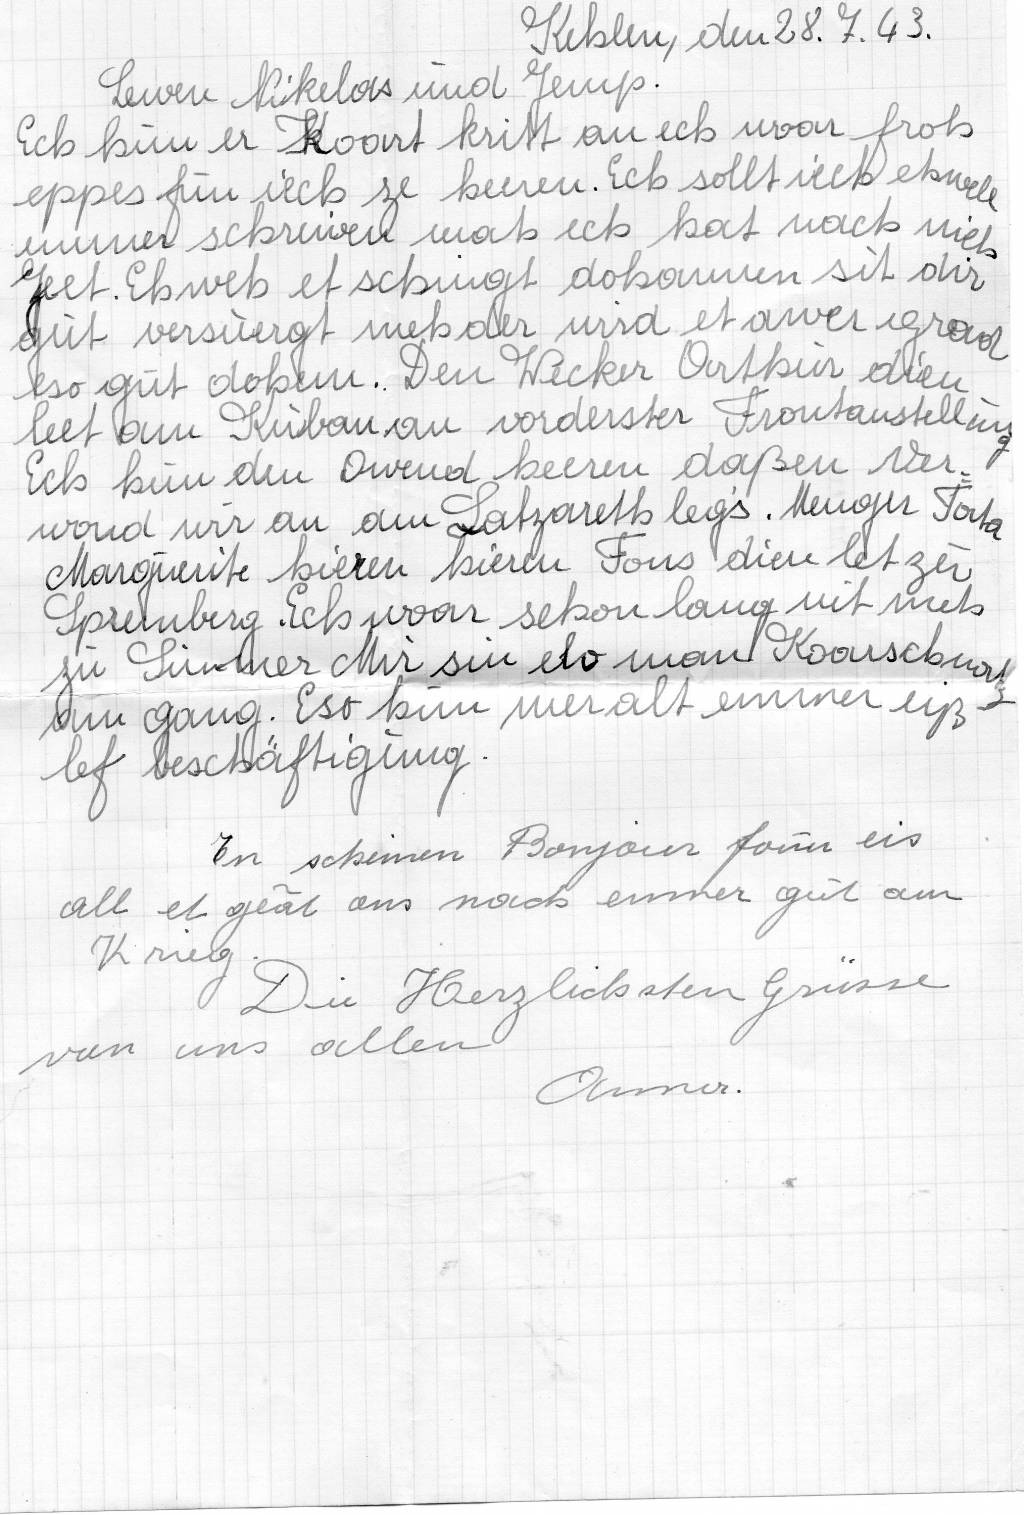 Kehlen, den 28. 7. 43.
Lewen Nikelas und Jemp.
Ech hun er Koart kritt an ech woar froh
eppes fun iech ze heeren. Ech sollt iech ehwell
ummer schreiwen mah ech hat nach nieh
Zeet. Ehweh et schingt dohannen sit dir
gut versuergt mehder wird et awer grad
eso gut dohem. Den Wecker Arthur dien
leet am Kuban an vorderster Frontanstellung
Ech hun den Owend heeren daßen Ver=
wond wir an am Latzareth leg's. Menger Tata
Marguerite hieren hieren Fons dien let zu
Spremberg. Ech woar schon lang nit meh
zu Simmer Mir sin elo man Koarschnatz
am gang. Eso hun mer alt emmer eiß
lef beschäftigung.
En scheinen Bonjour foun eis
all et geât ons nach emmer gut am
Krieg.
Die Herzlichsten Grüsse
von uns allen
Anner.